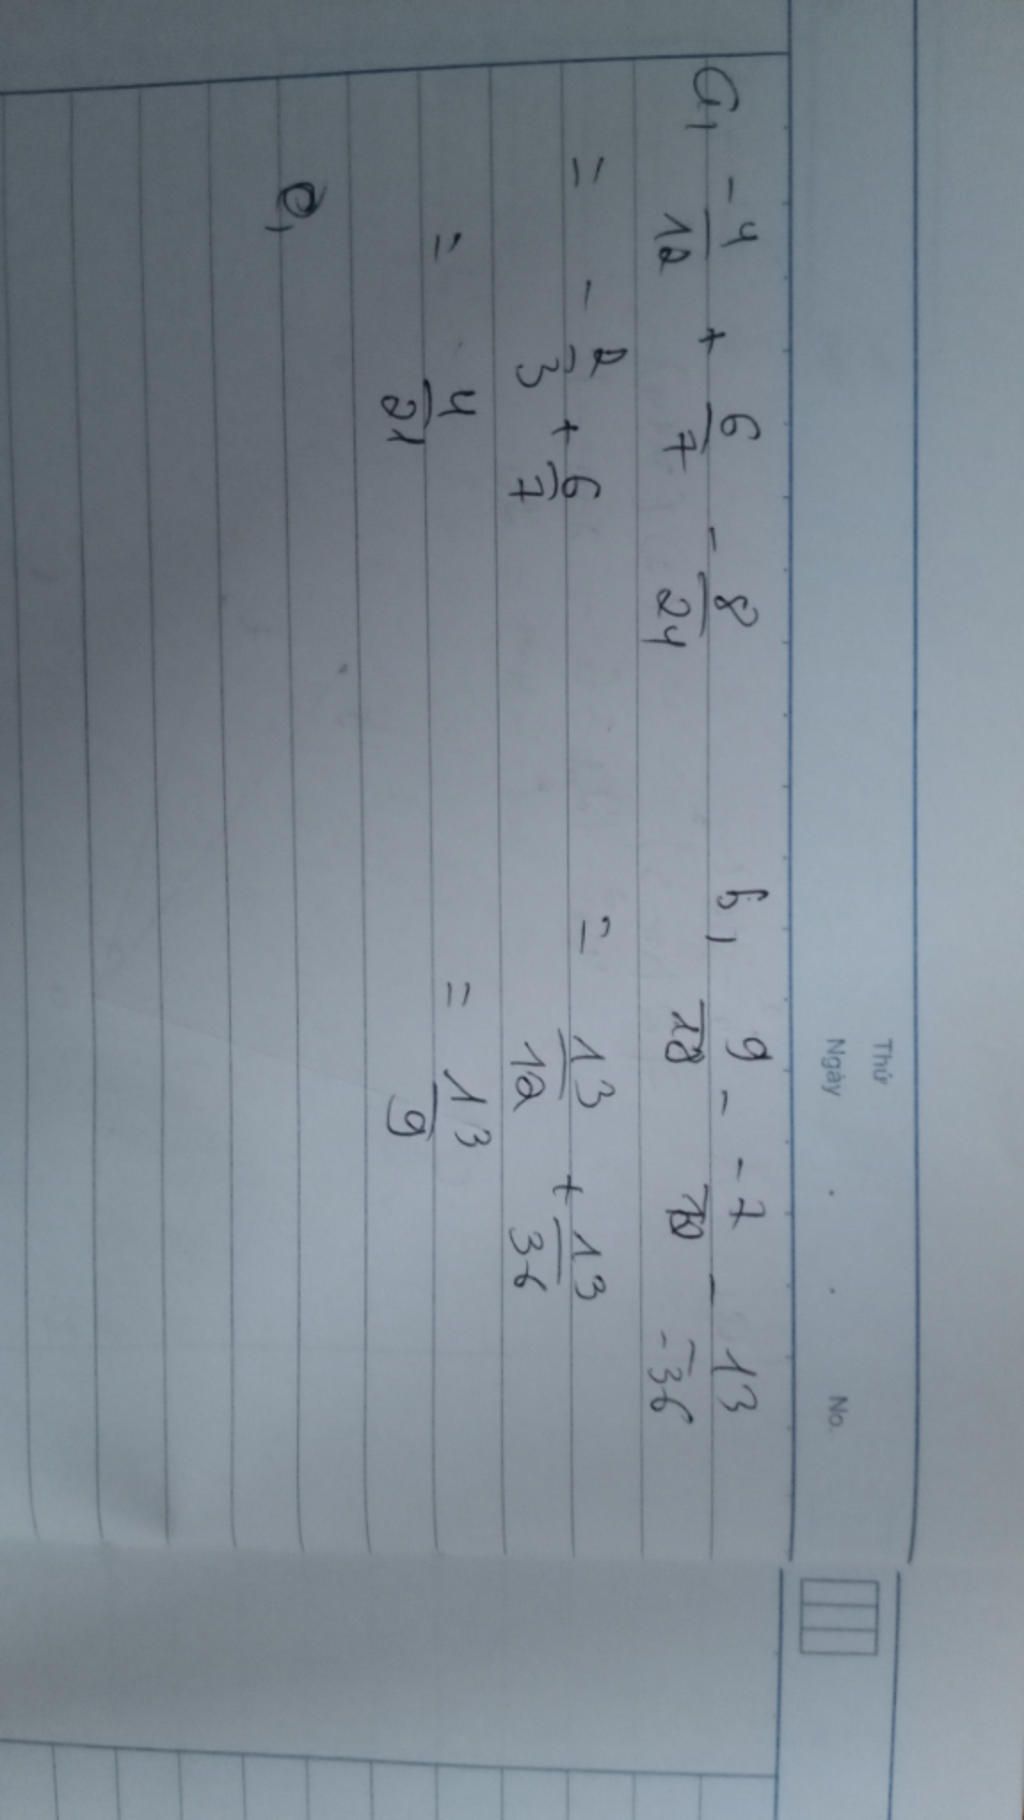 Thứ
Ngày . . No.
a, -4/12 + 6/7 - 8/24
= -2/3 + 6/7
= 4/21
b, 9/18 - -7/12 - 13/-36
= 13/12 + 13/36
= 13/9
c,